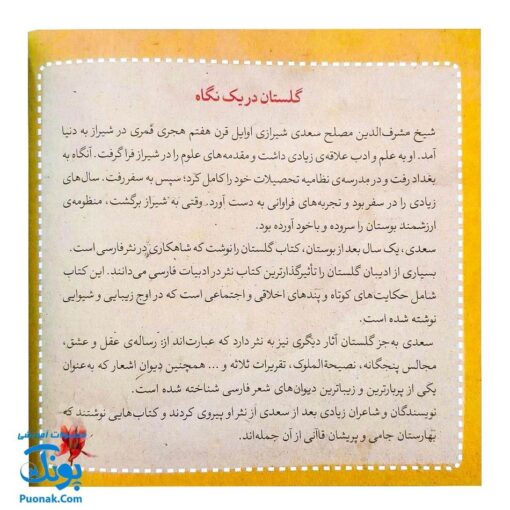 گلستان در یک نگاه
شیخ مشرف‌الدین مصلح سعدی شیرازی اوایل قرن هفتم هجری قمری در شیراز به دنیا
آمد. او به علم و ادب علاقه‌ی زیادی داشت و مقدمه‌های علوم را در شیراز فرا گرفت. آنگاه به
بغداد رفت و در مدرسه‌ی نظامیه تحصیلات خود را کامل کرد؛ سپس به سفر رفت. سال‌های
زیادی را در سفر بود و تجربه‌های فراوانی به دست آورد. وقتی به شیراز برگشت، منظومه‌ی
ارزشمند بوستان را سروده و با خود آورده بود.
سعدی، یک سال بعد از بوستان، کتاب گلستان را نوشت که شاهکاری در نثر فارسی است.
بسیاری از ادیبان گلستان را تأثیرگذارترین کتاب نثر در ادبیات فارسی می‌دانند. این کتاب
شامل حکایت‌های کوتاه و پندهای اخلاقی و اجتماعی است که در اوج زیبایی و شیوایی
نوشته شده است.
سعدی به‌جز گلستان آثار دیگری نیز به نثر دارد که عبارت‌اند از: رساله‌ی عقل و عشق،
مجالس پنجگانه، نصیحة‌الملوک، تقریرات ثلاثه و ... همچنین دیوان اشعار که به‌عنوان
یکی از پربارترین و زیباترین دیوان‌های شعر فارسی شناخته شده است.
نویسندگان و شاعران زیادی بعد از سعدی از نثر او پیروی کردند و کتاب‌هایی نوشتند که
بهارستان جامی و پریشان قاآنی از آن جمله‌اند.
پونک
Puonak.Com